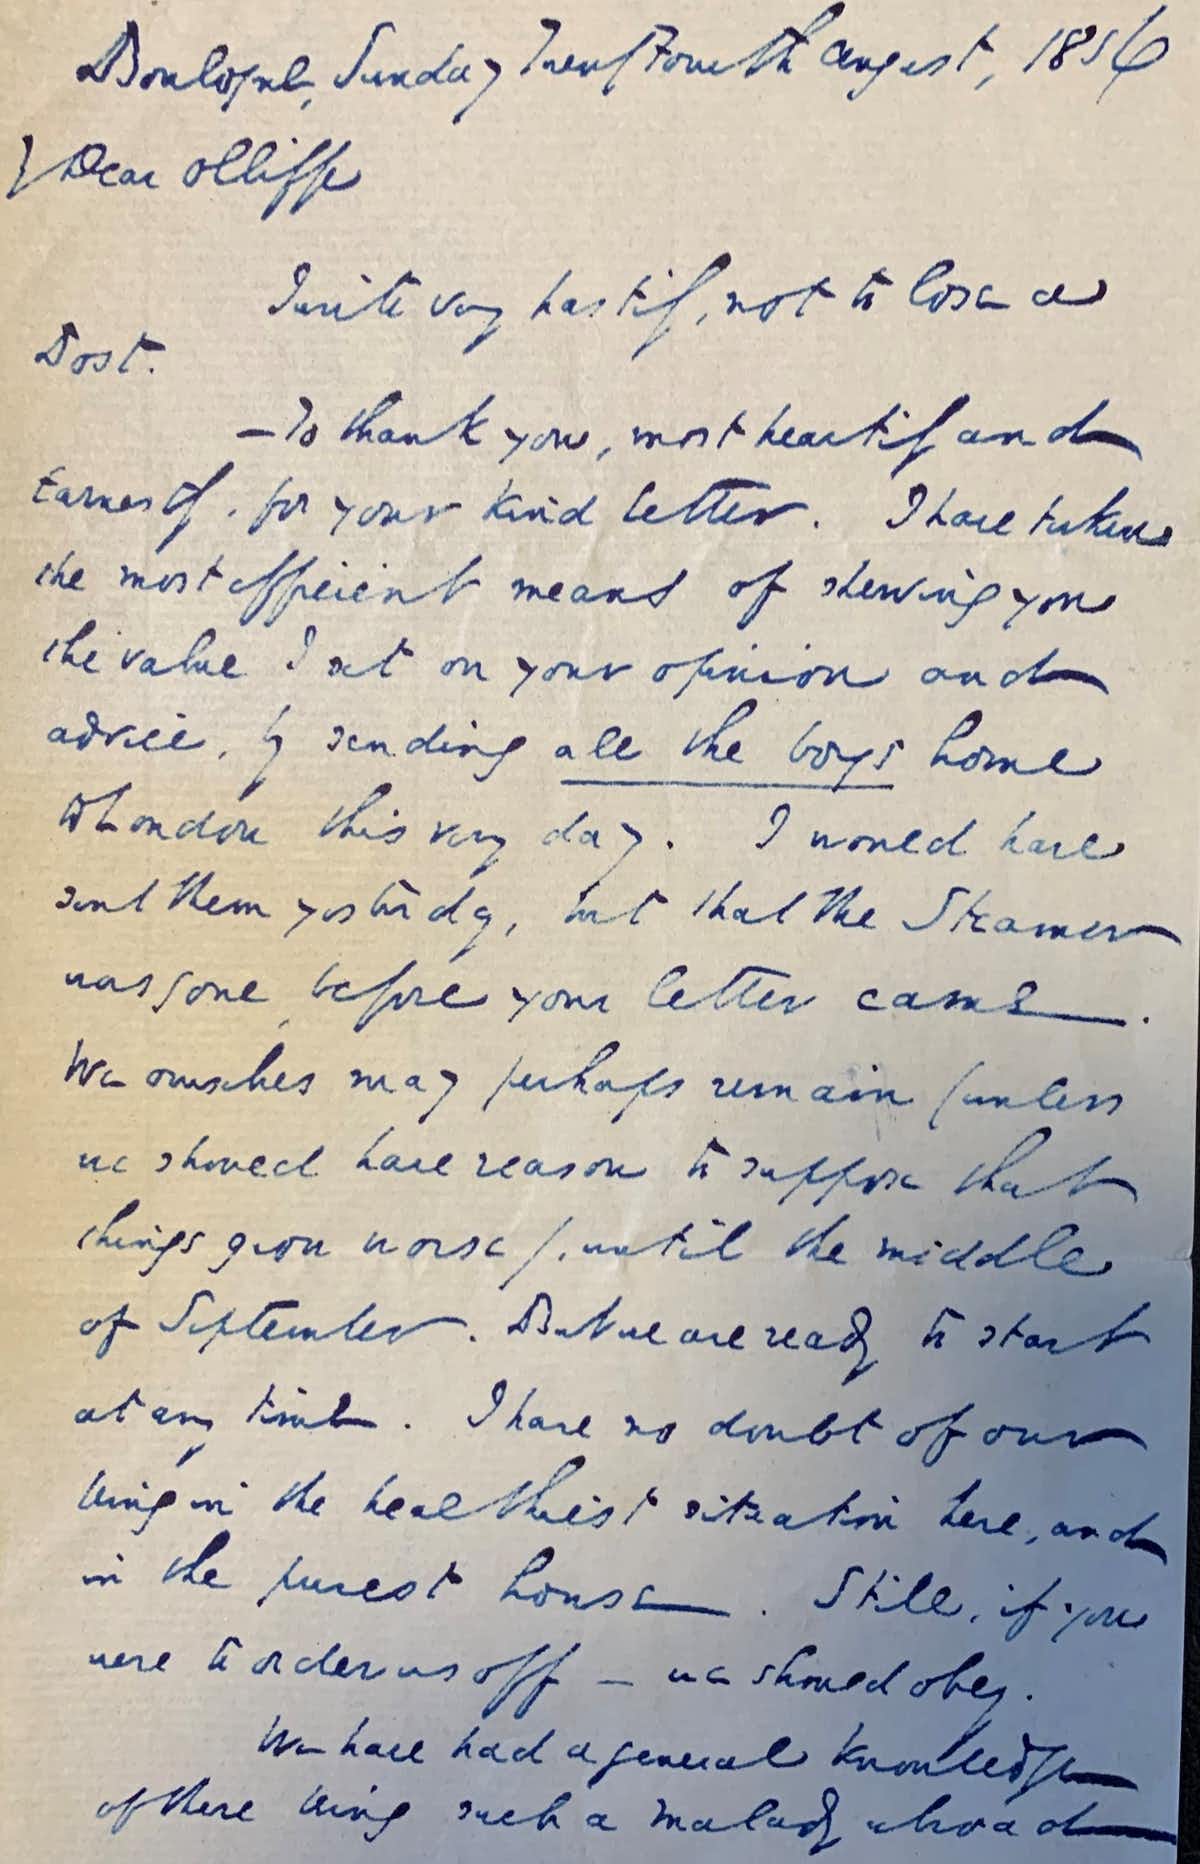 Boulogne, Sunday Twenty Fourth August, 1856
My Dear Olliffe
I write very hastily, not to lose a
Post.
—To thank you, most heartily and
earnestly, for your kind letter. I have taken
the most efficient means of shewing you
the value I set on your opinion and
advice, by sending all the boys home
to London this very day. I would have
sent them yesterday, but that the Steamer
was gone before your letter came.
We ourselves may perhaps remain (unless
we should have reason to suppose that
things grow worse), until the middle
of September. But we are ready to start
at any time. I have no doubt of our
being in the healthiest situation here, and
in the purest house. Still, if you
were to order us off — we should obey.
We have had a general knowledge
of there being such a malady abroad